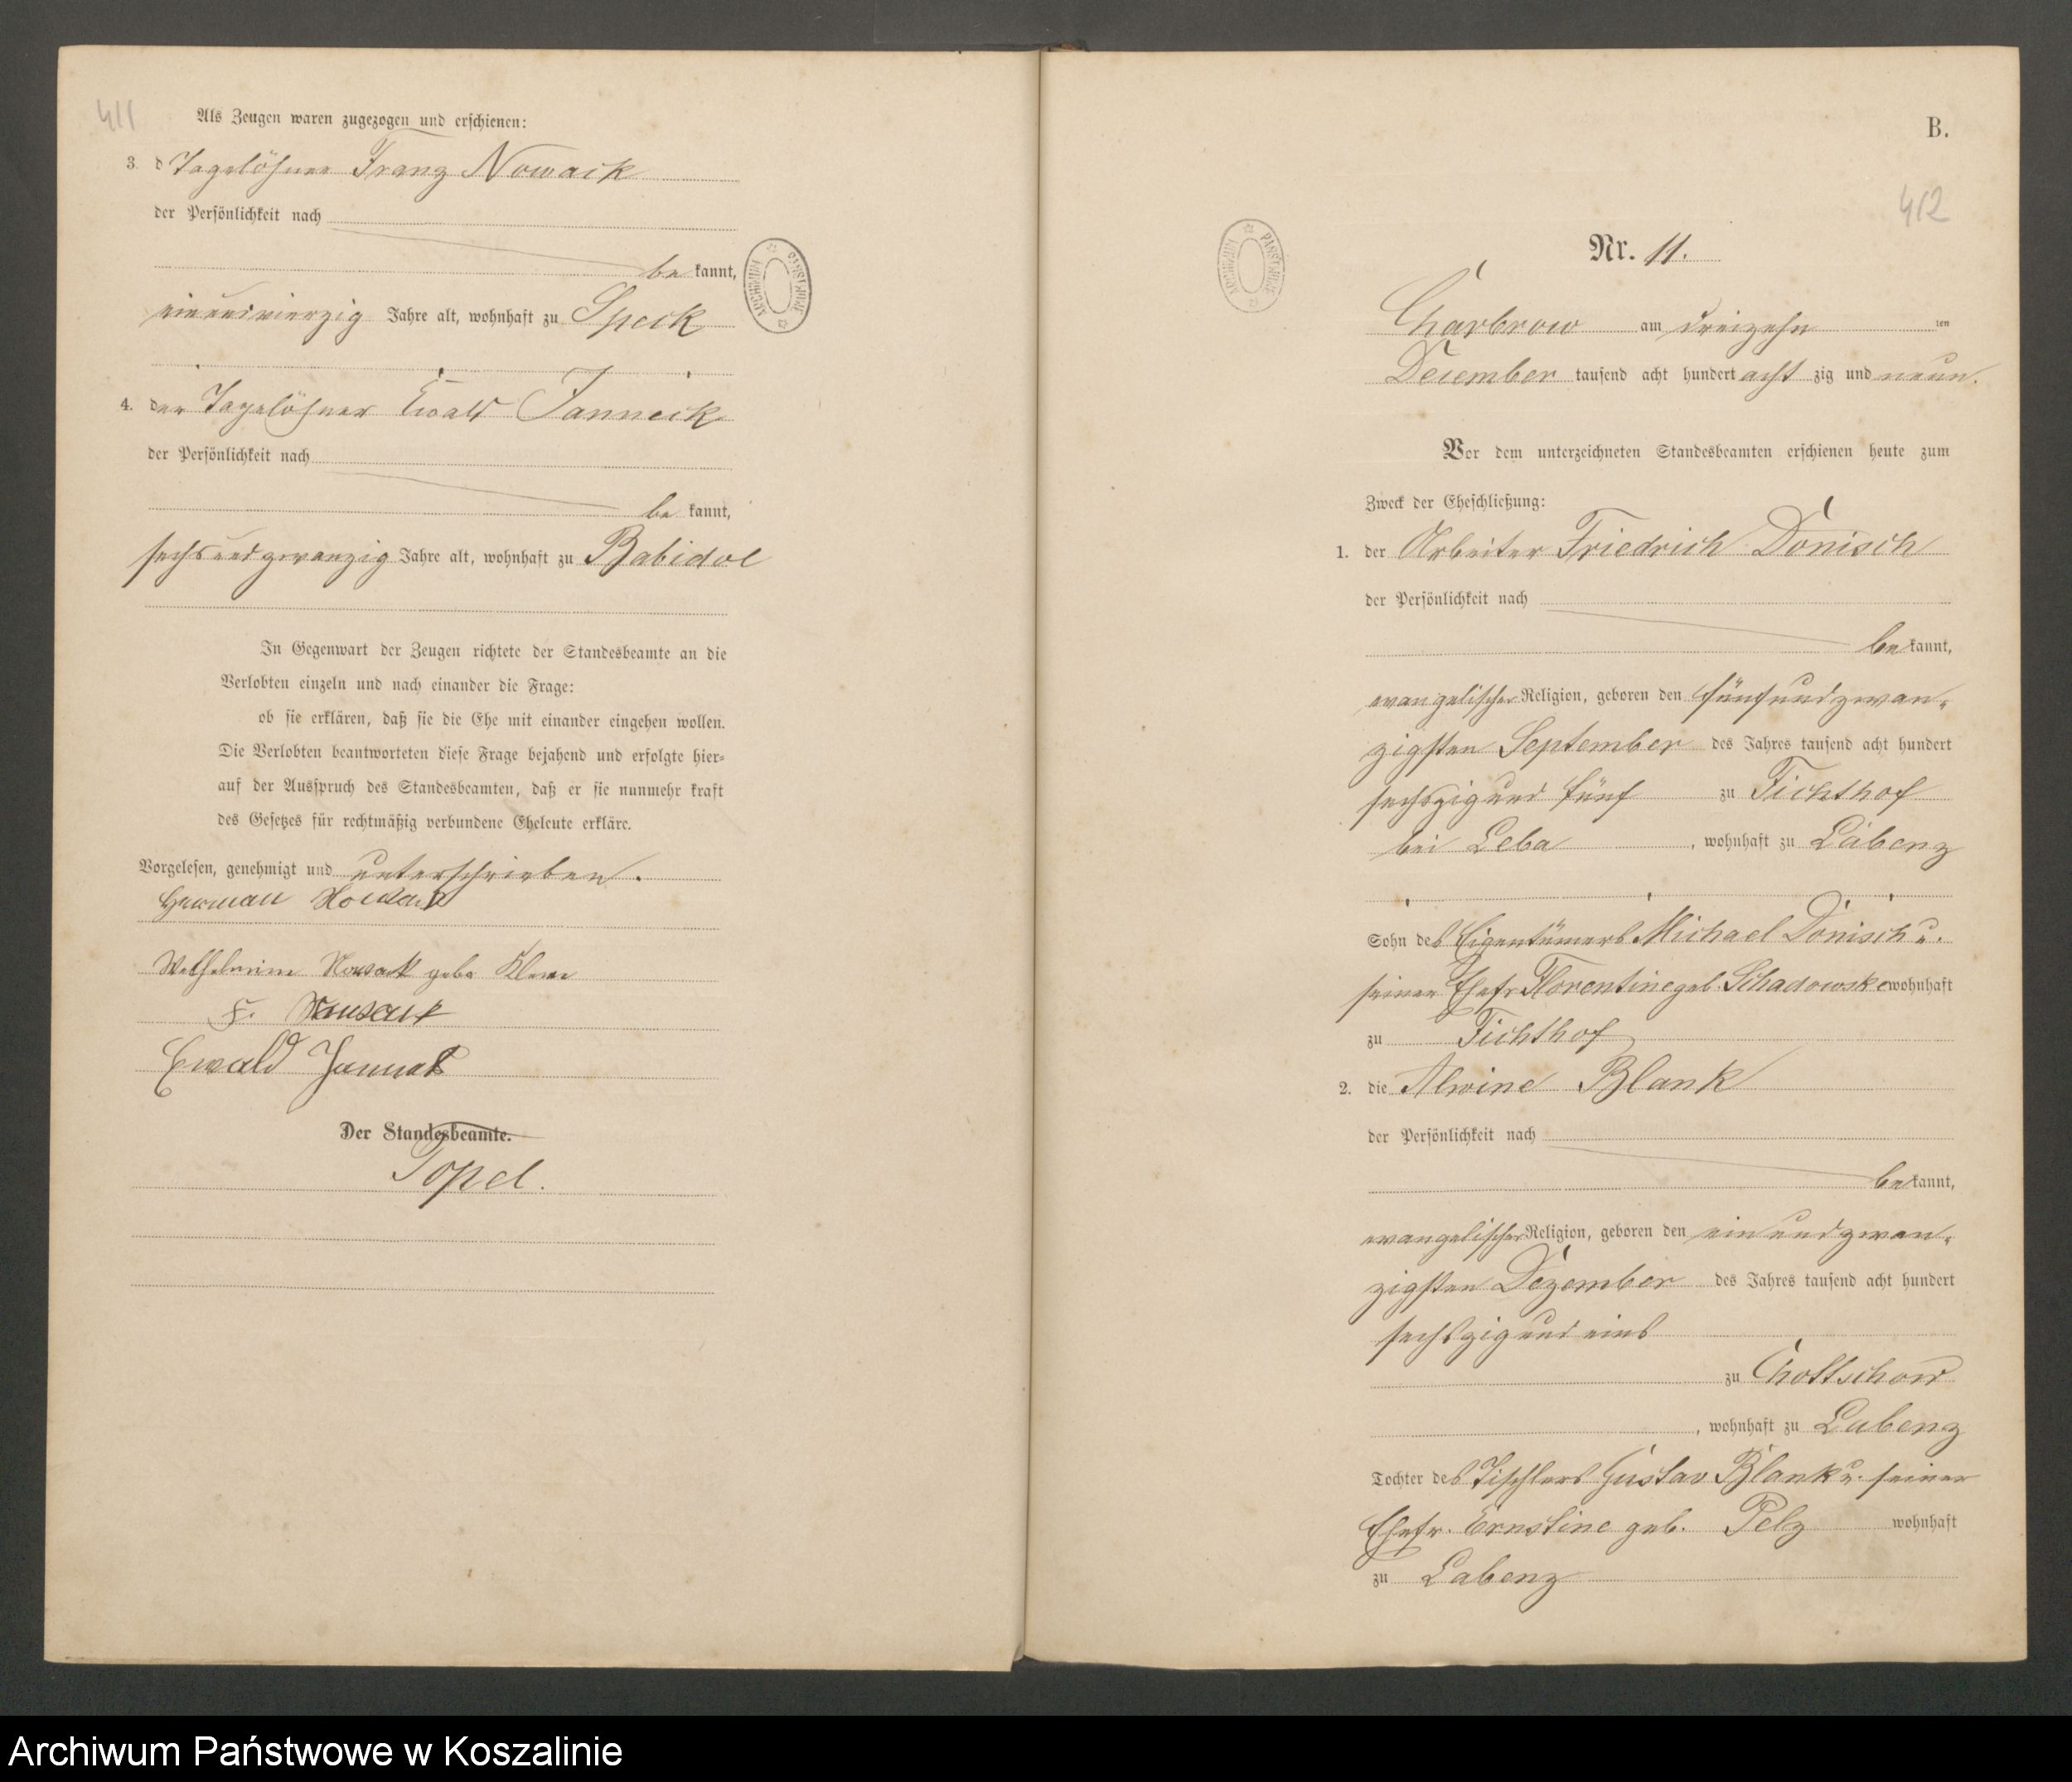 411
Als Zeugen waren zugezogen und erschienen:
3. d Tagelöhner Franz Nowack
der Persönlichkeit nach
be kannt,
einundvierzig Jahre alt, wohnhaft zu Speck
4. der Tagelöhner Ewald Janneck
der Persönlichkeit nach
be kannt,
sechsundzwanzig Jahre alt, wohnhaft zu Babidol
In Gegenwart der Zeugen richtete der Standesbeamte an die
Verlobten einzeln und nach einander die Frage:
ob sie erklären, daß sie die Ehe mit einander eingehen wollen.
Die Verlobten beantworteten diese Frage bejahend und erfolgte hier-
auf der Ausspruch des Standesbeamten, daß er sie nunmehr kraft
des Gesetzes für rechtmäßig verbundene Eheleute erkläre.
Vorgelesen, genehmigt und unterschrieben.
Herman
Nowack geb
F.
Ewald
Der Standesbeamte.
Topel.
ARCHIWUM PAŃSTWOWE
B.
412
ARCHIWUM PAŃSTWOWE
Nr. 11.
Charbrow am dreizehn ten
December tausend acht hundert acht zig und neun.
Vor dem unterzeichneten Standesbeamten erschienen heute zum
Zweck der Eheschließung:
1. der Arbeiter Friedrich Donisch
der Persönlichkeit nach
be kannt,
evangelischer Religion, geboren den fünfundzwan-
zigsten September des Jahres tausend acht hundert
sechszig und fünf zu Fichthof
bei Leba, wohnhaft zu Labenz
Sohn des Eigentümers Michael Donisch u.
seiner Ehefr Florentine geb. Schadowske wohnhaft
zu Fichthof
2. die Alwine Blank
der Persönlichkeit nach
be kannt,
evangelischer Religion, geboren den einundzwan-
zigsten Dezember des Jahres tausend acht hundert
sechszig und eins
zu Chottschow
, wohnhaft zu Labenz
Tochter des Tischlers Gustav Blank u. seiner
Ehefr. Ernstine geb. Pelz wohnhaft
zu Labenz
Archiwum Państwowe w Koszalinie